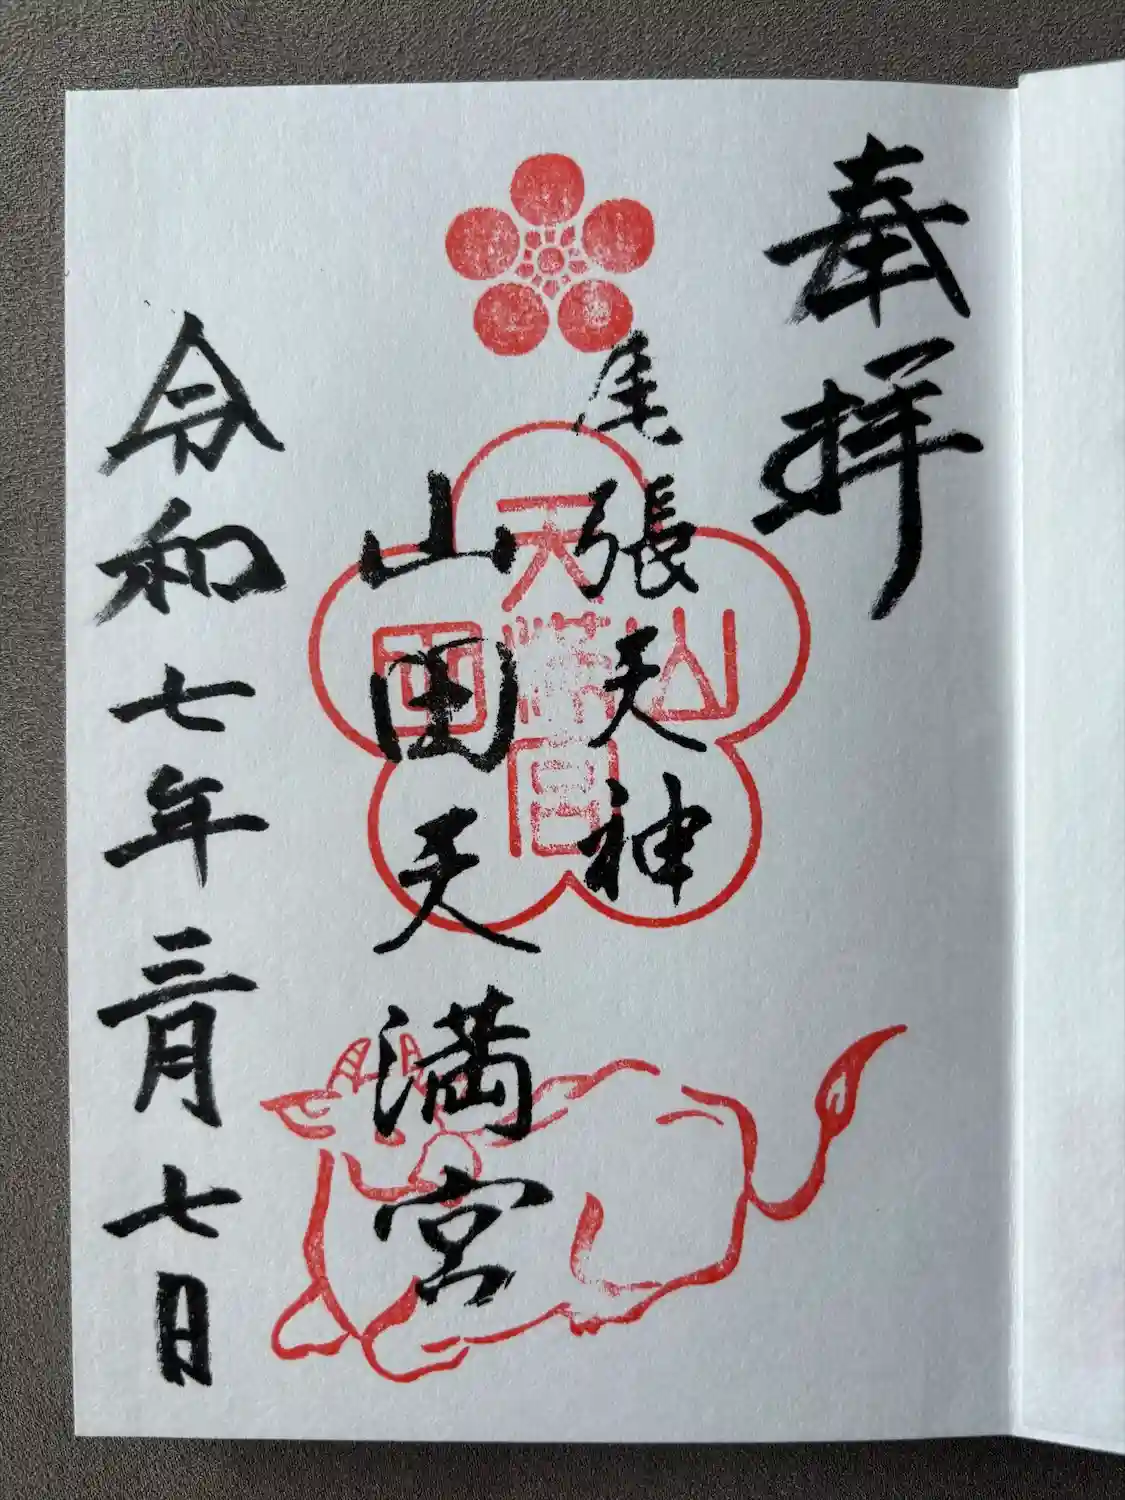 奉拝
尾張天神
山田天満宮
山田天満宮
令和七年三月七日